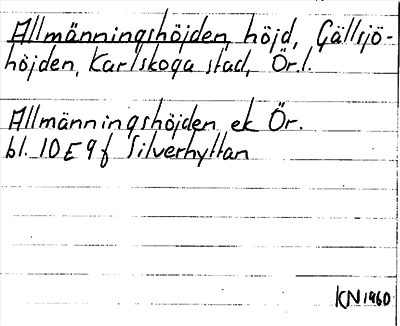 Allmänningshöjden, höjd, Gällsjö-
höjden, Karlskoga stad, Ör.l.
Allmänningshöjden ek Ör.
bl. 10E9f Silverhyttan
KN1960